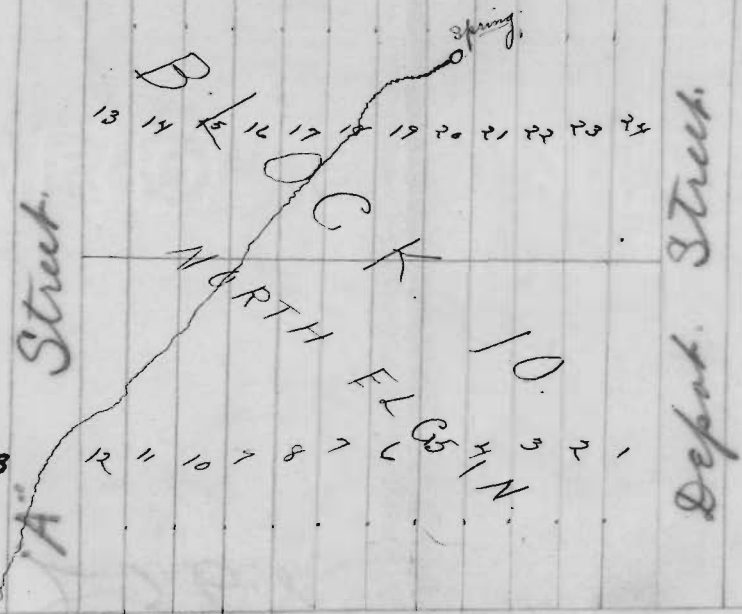 Spring.
BLOCK 10.
13 14 15 16 17 18 19 20 21 22 23 24
NORTH ELGIN
12 11 10 9 8 7 6 5 4 3 2 1
"A" Street.
Depot Street.